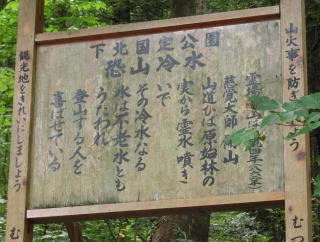 下北国定公園
恐山冷水
四年(八六二年)
慈覚大師 開山
山道ひば原始林の
から霊水噴き
いで
その冷水なる
水は不老水とも
うたわれ
登山する人を
喜ばせている
山火事を防ぎ
むつ
観光地をきれいにしましょう
む